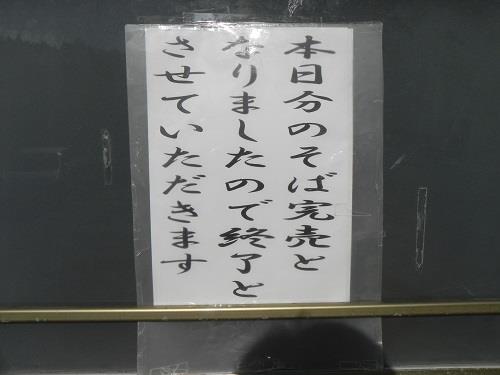 本日分のそば完売と
なりましたので終了と
させていただきます